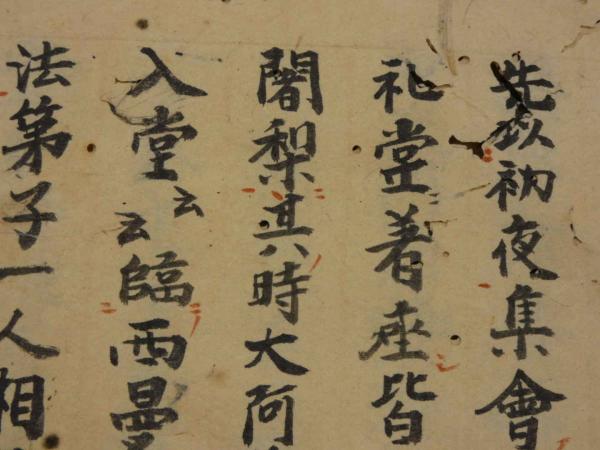 先以初夜集會
礼堂着座皆
闍梨其時大阿
入堂云云臨西曼
法弟子一人相